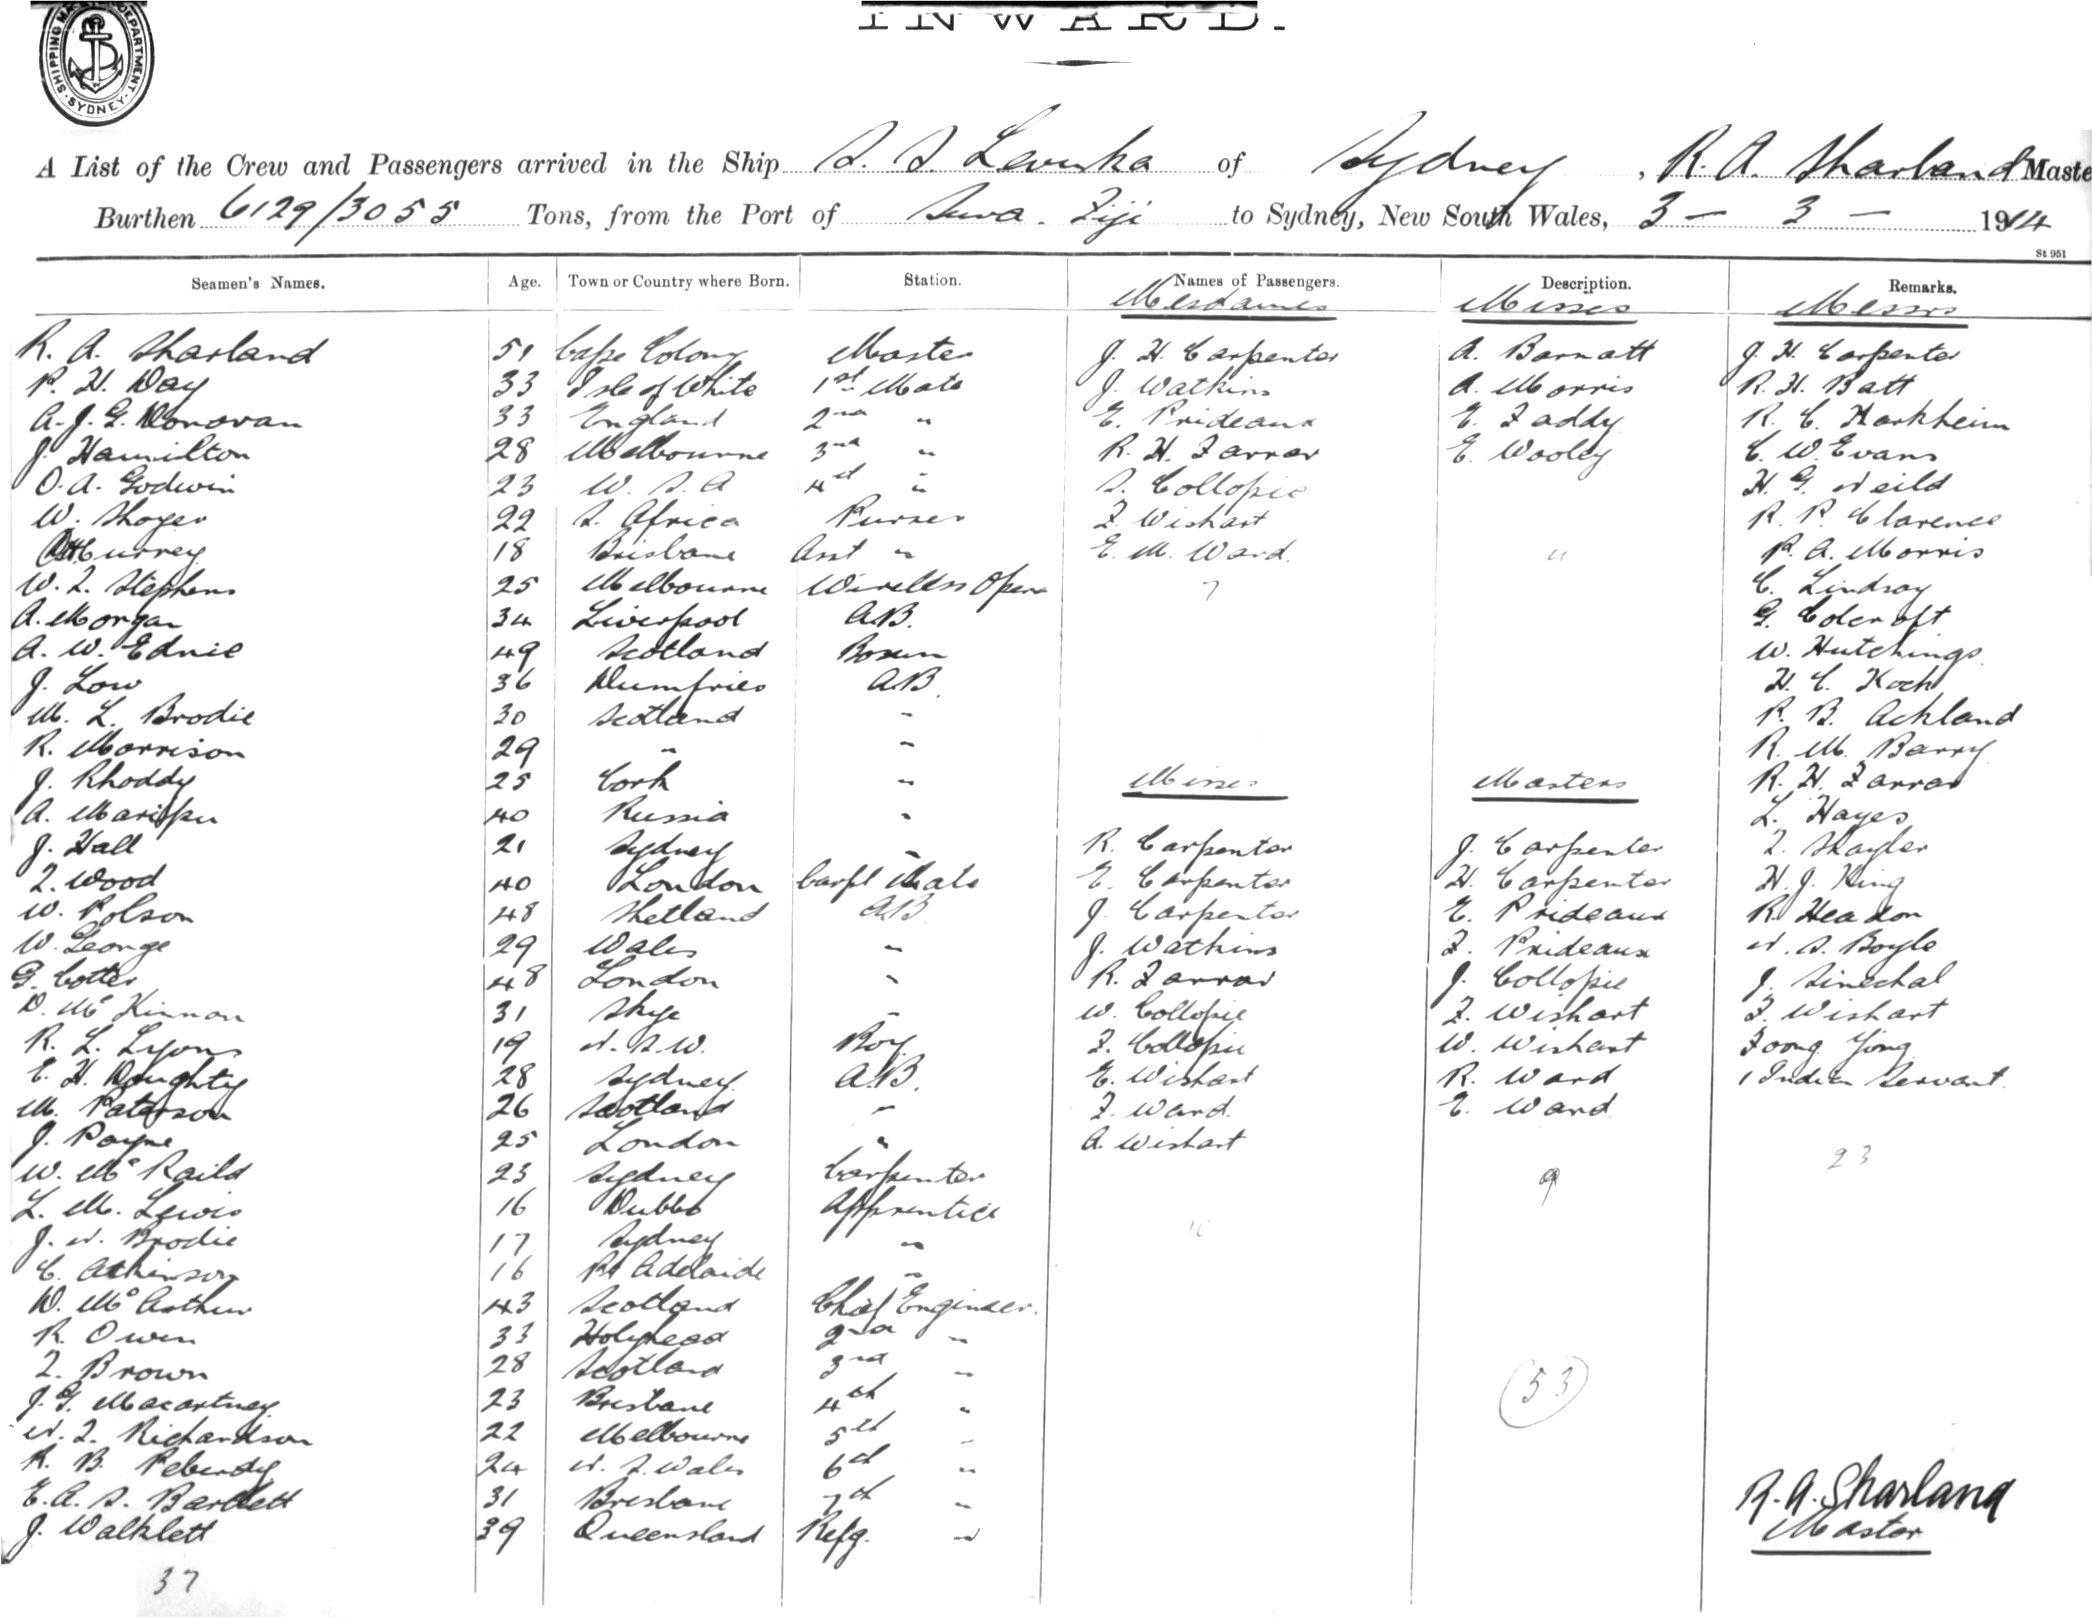 SHIPPING MASTER'S DEPARTMENT. SYDNEY
INWARD.
A List of the Crew and Passengers arrived in the Ship S. S. Levuka of Sydney, R. A. Sharland Maste
Burthen 6129/3055 Tons, from the Port of Suva. Fiji to Sydney, New South Wales, 3 - 3 - 1914
St 951
Seamen's Names. Age. Town or Country where Born. Station. Names of Passengers. Description. Remarks.
Mesdames Misses Messrs
R. A. Sharland 51 Cape Colony Master J. H. Carpenter A. Barnatt J. H. Carpenter
P. H. Day 33 Isle of White 1st Mate J. Watkins A. Morris R. H. Batt
A. J. G. Donovan 33 England 2nd " E. Prideaux E. Faddy R. C. Harkheim
J. Hamilton 28 Melbourne 3rd " R. H. Farrar E. Wooley C. W. Evans
O. A. Godwin 23 W. S. A 4th " S. Collopie H. G. Neild
W. Shoyer 22 S. Africa Purser F. Wishart R. P. Clarence
Currey 18 Brisbane Asst " E. M. Ward. " P. A. Morris
W. F. Stephens 25 Melbourne Wireless Opera 7 C. Lindsay
A. Morgan 34 Liverpool A.B. G. Colcroft
A. W. Ednie 49 Scotland Bosun W. Hutchings
J. Low 36 Dumfries A.B. H. C. Koch
M. L. Brodie 30 Scotland " R. B. Ackland
R. Morrison 29 " " R. M. Barry
J. Rhoddy 25 Cork " Misses Masters R. H. Farrar
A. 40 Russia " L. Hayes
J. Hall 21 Sydney " R. Carpenter J. Carpenter F. Shayler
F. Wood 40 London Carpt Mate E. Carpenter H. Carpenter H. J. King
W. Polson 48 Shetland A.B. J. Carpenter E. Prideaux R. Headon
W. George 29 Wales " J. Watkins F. Prideaux N. S. Boyle
G. Cotter 48 London " R. Farrar J. Collopie J. Sinechal
D. McKinnon 31 Skye " W. Collopie F. Wishart F. Wishart
R. L. Lyons 19 N. S. W. Boy F. Collopie W. Wishart Foong Yong
E. H. Doughty 28 Sydney A.B. E. Wishart R. Ward 1 Indian Servant.
M. Paterson 26 Scotland " F. Ward. E. Ward
J. Payne 25 London " A. Wishart
W. McRaild 23 Sydney Carpenter 9 23
L. M. Lewis 16 Dubbo Apprentice
J. N. Brodie 17 Sydney " 10
C. Atkinson 16 Pt Adelaide "
D. McArthur 43 Scotland Chief Engineer.
R. Owen 33 Holyhead 2nd "
F. Brown 28 Scotland 3rd "
J. G. Macartney 23 Brisbane 4th " 53
N. F. Richardson 22 Melbourne 5th "
R. B. Peberdy 24 N. S. Wales 6th "
E. A. S. Bartlett 31 Brisbane 7th " R. A. Sharland
J. Walklett 39 Queensland Refg. " Master
37